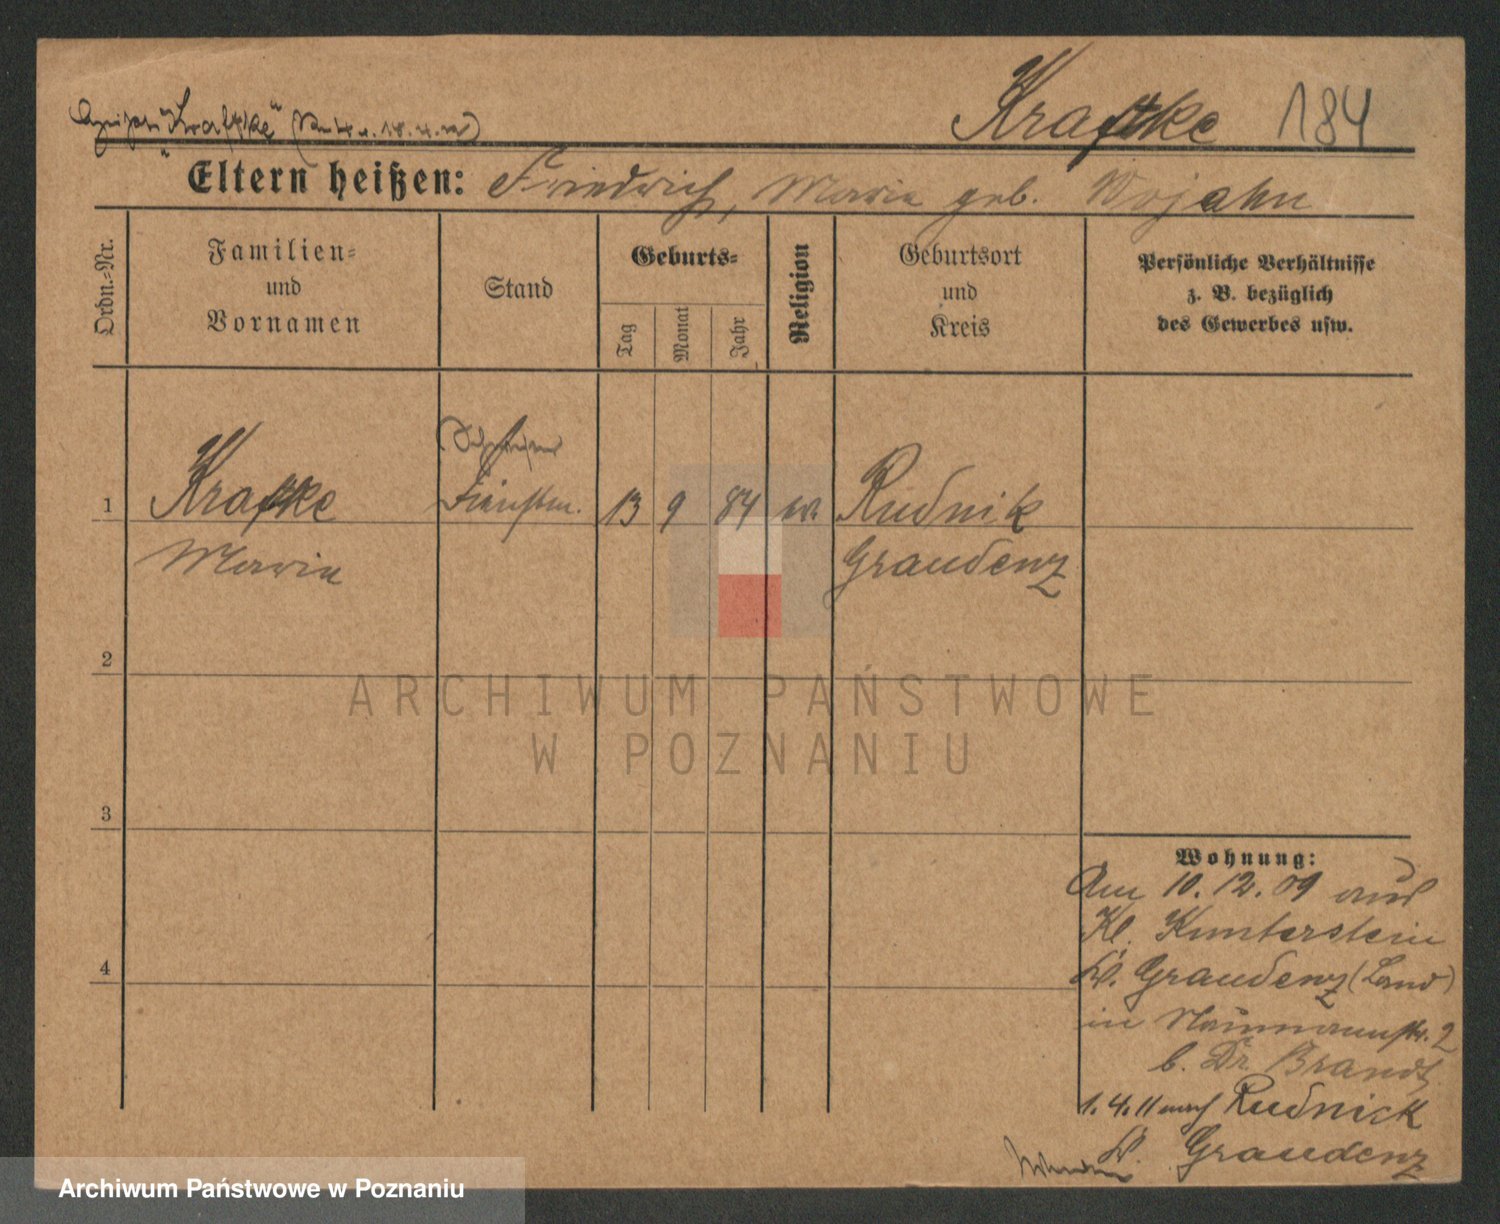 "Kraftke"
Kraftke 184
Eltern heißen: Friedrich, Maria geb. Wojahn
Ordn.-Nr.
Familien-
und
Vornamen
Stand
Geburts-
Tag
Monat
Jahr
Religion
Geburtsort
und
Kreis
Persönliche Verhältnisse
z. B. bezüglich
des Gewerbes usw.
1 Kraftke 13 9 84 ev. Rudnik
Maria Graudenz
2
3
4
Wohnung:
Am 10.12.09 aus
Kl. Kunterstein
Kr. Graudenz (Land)
in Naumannstr. 2
b. Dr. Brandt
1.4.11 nach Rudnick
Kr. Graudenz
ARCHIWUM PAŃSTWOWE
W POZNANIU
Archiwum Państwowe w Poznaniu